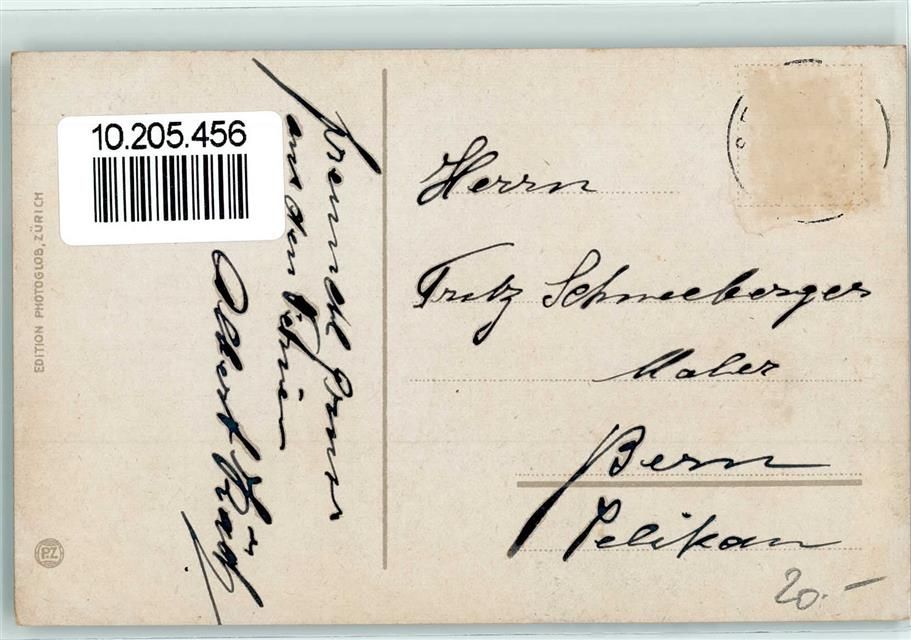 10.205.456
EDITION PHOTOGLOB, ZÜRICH
aus dem
Albert
Herrn
Fritz Schneeberger
Maler
Bern
Pelikan
PZ
20.-